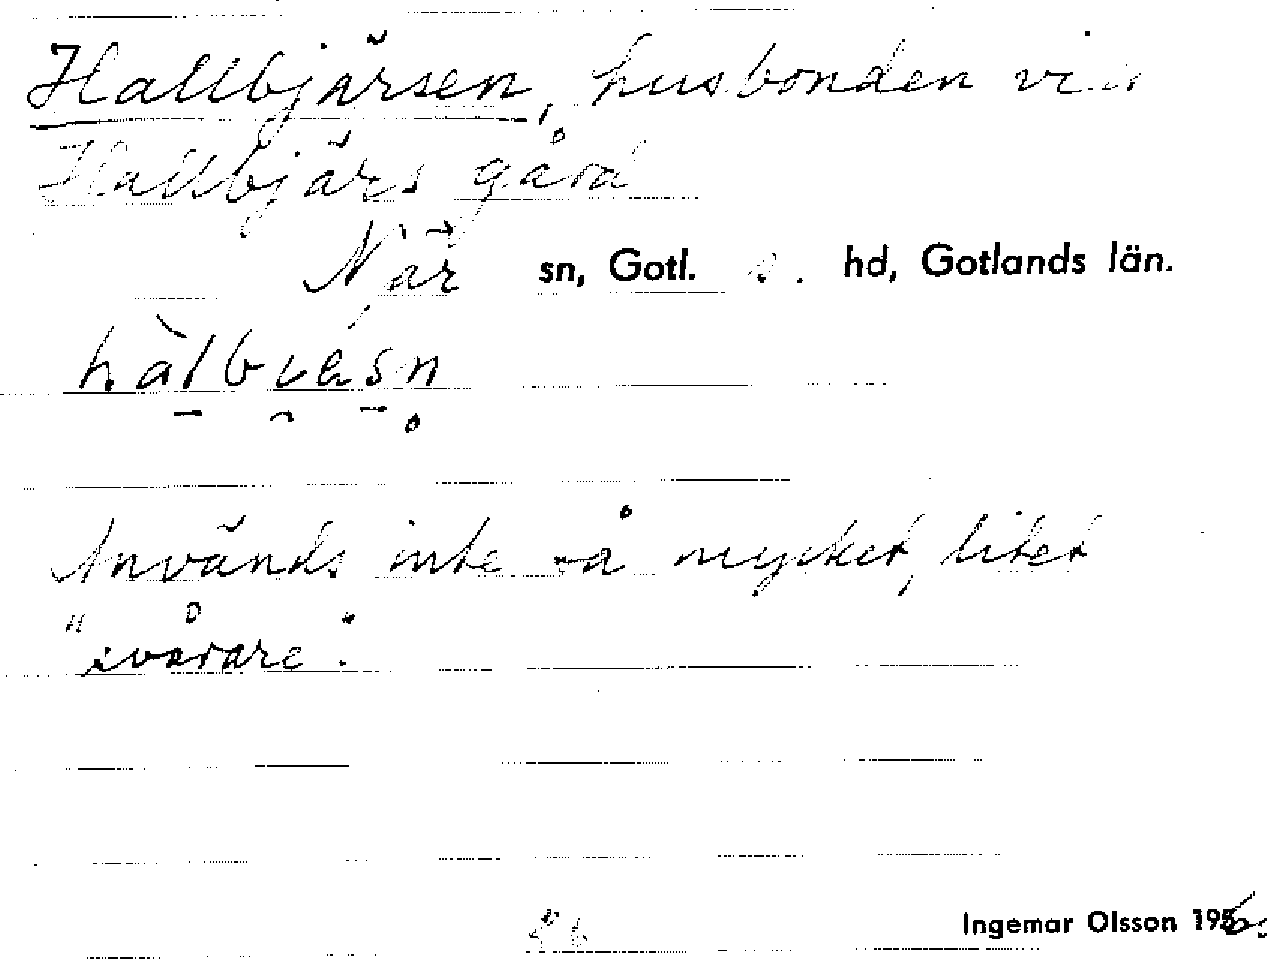 Hallbjärsen, husbonden vid
Hallbjärs gård
När sn, Gotl. s. hd, Gotlands län.
Används inte så mycket, litet
"svårare".
Ingemar Olsson 195